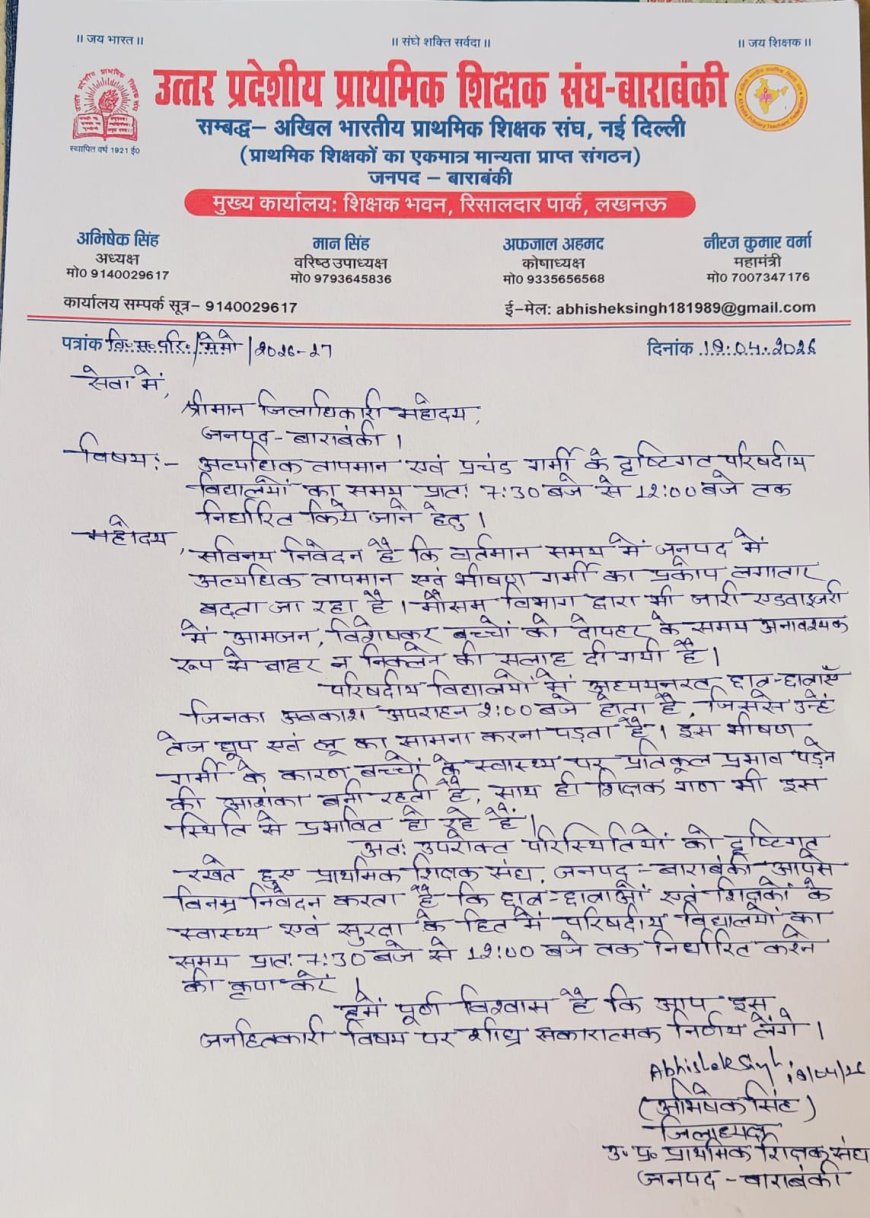 ॥ जय भारत ॥
॥ संघे शक्ति सर्वदा ॥
॥ जय शिक्षक ॥
उत्तर प्रदेशीय प्राथमिक शिक्षक संघ-बाराबंकी
सम्बद्ध– अखिल भारतीय प्राथमिक शिक्षक संघ, नई दिल्ली
(प्राथमिक शिक्षकों का एकमात्र मान्यता प्राप्त संगठन)
स्थापित वर्ष 1921 ई0
जनपद – बाराबंकी
मुख्य कार्यालय: शिक्षक भवन, रिसालदार पार्क, लखनऊ
अभिषेक सिंह
अध्यक्ष
मो0 9140029617
मान सिंह
वरिष्ठ उपाध्यक्ष
मो0 9793645836
अफजाल अहमद
कोषाध्यक्ष
मो0 9335656568
नीरज कुमार वर्मा
महामंत्री
मो0 7007347176
कार्यालय सम्पर्क सूत्र– 9140029617
ई–मेल: abhisheksingh181989@gmail.com
पत्रांक वि.स.परि./मेमो/2026-27
दिनांक 18.04.2026
सेवा में,
श्रीमान जिलाधिकारी महोदय,
जनपद-बाराबंकी।
विषय:- अत्यधिक तापमान एवं प्रचंड गर्मी के दृष्टिगत परिषदीय
विद्यालयों का समय प्रात: 7:30 बजे से 12:00 बजे तक
निर्धारित किये जाने हेतु।
महोदय,
सविनय निवेदन है कि वर्तमान समय में जनपद में
अत्यधिक तापमान एवं भीषण गर्मी का प्रकोप लगातार
बढता जा रहा है। मौसम विभाग द्वारा भी जारी एडवाइजरी
में आमजन, विशेषकर बच्चों को दोपहर के समय अनावश्यक
रूप से बाहर न निकलने की सलाह दी गयी है।
परिषदीय विद्यालयों में अध्ययनरत छात्र-छात्राएँ
जिनका अवकाश अपराहन 2:00 बजे होता है, जिससे उन्हें
तेज धूप एवं लू का सामना करना पड़ता है। इस भीषण
गर्मी के कारण बच्चों के स्वास्थ्य पर प्रतिकूल प्रभाव पड़ने
की आशंका बनी रहती है, साथ ही शिक्षक गण भी इस
स्थिति से प्रभावित हो रहे हैं।
अत: उपरोक्त परिस्थितियों को दृष्टिगत
रखते हुए प्राथमिक शिक्षक संघ, जनपद-बाराबंकी आपसे
विनम्र निवेदन करता है कि छात्र-छात्राओं एवं शिक्षकों के
स्वास्थ्य एवं सुरक्षा के हित में परिषदीय विद्यालयों का
समय प्रात: 7:30 बजे से 12:00 बजे तक निर्धारित करने
की कृपा करें।
हमें पूर्ण विश्वास है कि आप इस
जनहितकारी विषय पर शीघ्र सकारात्मक निर्णय लेंगे।
Abhishek Singh 18/04/26
(अभिषेक सिंह)
जिलाध्यक्ष
उ॰ प्र॰ प्राथमिक शिक्षक संघ
जनपद-बाराबंकी